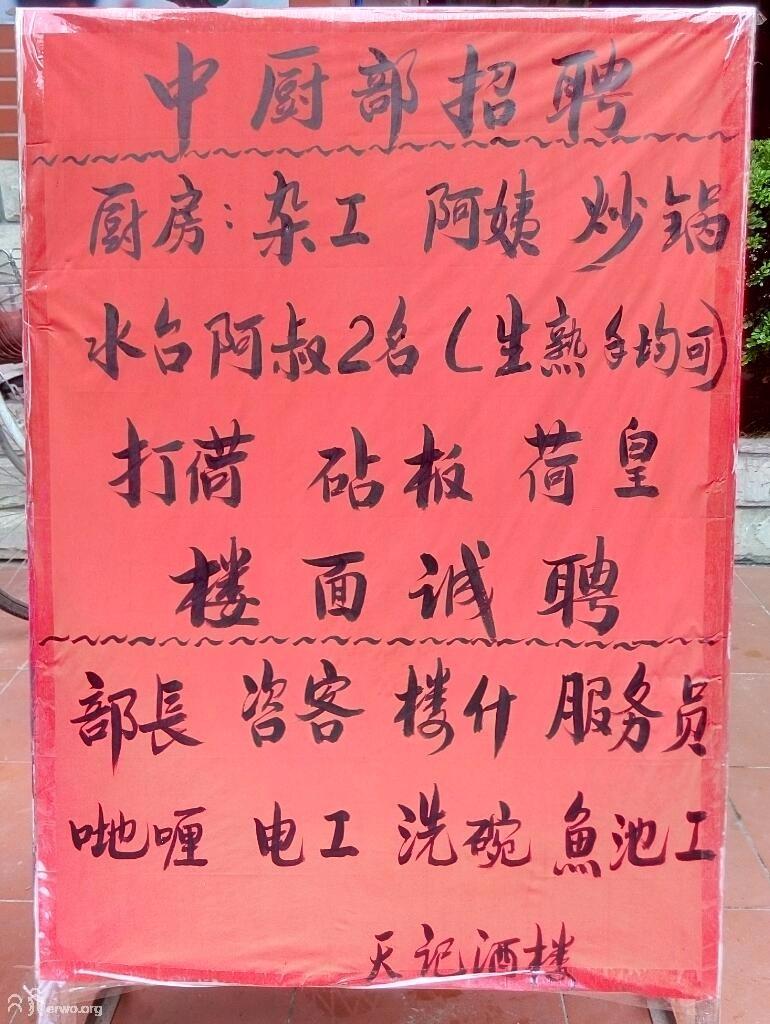 中厨部招聘
厨房：杂工 阿姨 炒锅
水台阿叔2名（生熟手均可）
打荷 砧板 荷皇
楼面诚聘
部長 咨客 楼什 服务员
哋喱 电工 洗碗 魚池工
天记酒楼
erwo.org